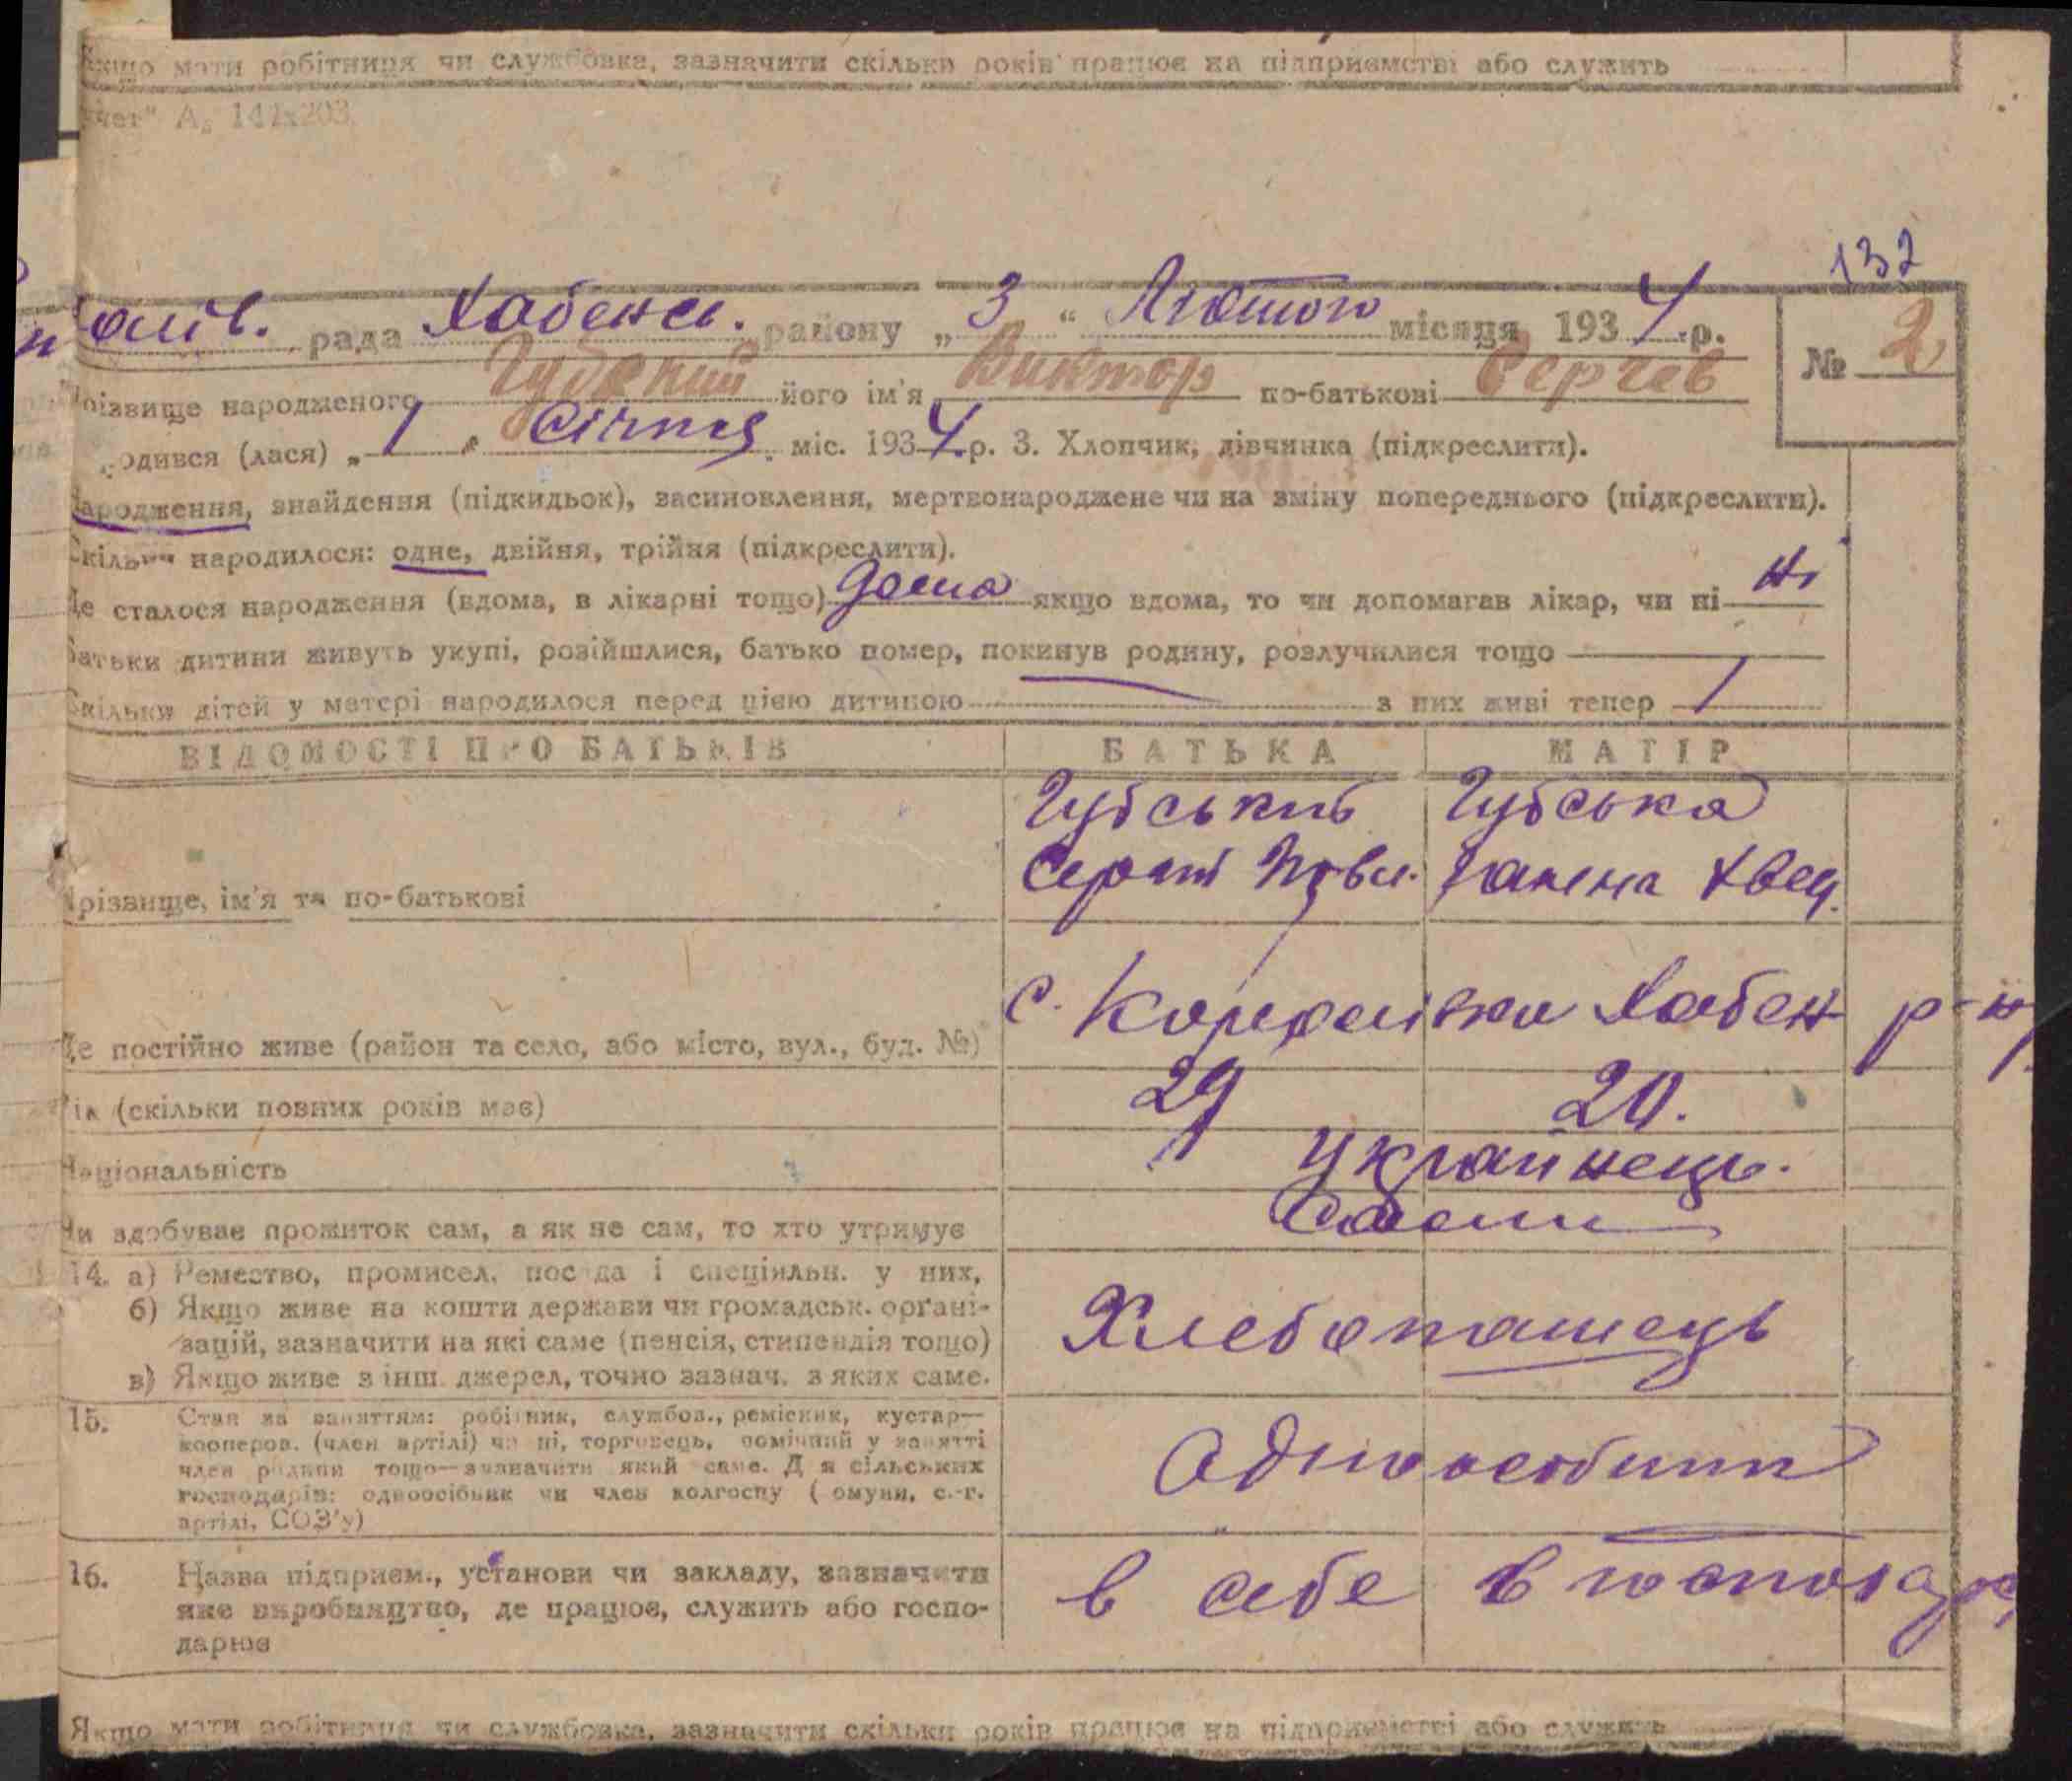 Якщо мати робітниця чи службовка, зазначити скільки років працює на підприємстві або служить
А₅ 147х203
132
рада Хабенсь. району „ 3 “ Лютого місяця 193 4 р.
№ 2
різвище народженого Губский його ім'я Виктор по-батькові Сергеев
одився (лася) „ 1 “ Січня міс. 193 4 р. 3. Хлопчик, дівчинка (підкреслити).
Народження, знайдення (підкидьок), засиновлення, мертвонароджене чи на зміну попереднього (підкреслити).
Скільки народилося: одне, двійня, трійня (підкреслити).
Де сталося народження (вдома, в лікарні тощо) дома якщо вдома, то чи допомагав лікар, чи ні Ні
Батьки дитини живуть укупі, розійшлися, батько помер, покинув родину, розлучилися тощо
Скільки дітей у матері народилося перед цією дитиною з них живі тепер 1
ВІДОМОСТІ ПРО БАТЬКІВ БАТЬКА МАТІР
Губський Губська
Прізвище, ім'я та по-батькові Сергій Павл. Хвед.
Де постійно живе (район та село, або місто, вул., буд. №) с. Хабен р-н
Вік (скільки повних років має) 29 20.
Національність Українець.
Чи здобуває прожиток сам, а як не сам, то хто утримує Сами
14. а) Ремество, промисел, посада і спеціяльн. у них,
б) Якщо живе на кошти держави чи громадськ. органі-
зацій, зазначити на які саме (пенсія, стипендія тощо) Хлебопашець
в) Якщо живе з інш. джерел, точно зазнач. з яких саме.
15. Стан за заняттям: робітник, службов., ремісник, кустар—
кооперов. (член артілі) чи ні, торговець, помічний у занятті
член родини тощо—зазначити який саме. Для сільських Одноосібники
господарів: одноосібник чи член колгоспу (комуни, с.-г.
артілі, СОЗ'у)
16. Назва підприєм., установи чи закладу, зазначити в себе в господар
яке виробництво, де працює, служить або госпо-
дарює
Якщо мати робітниця чи службовка, зазначити скільки років працює на підприємстві або служить